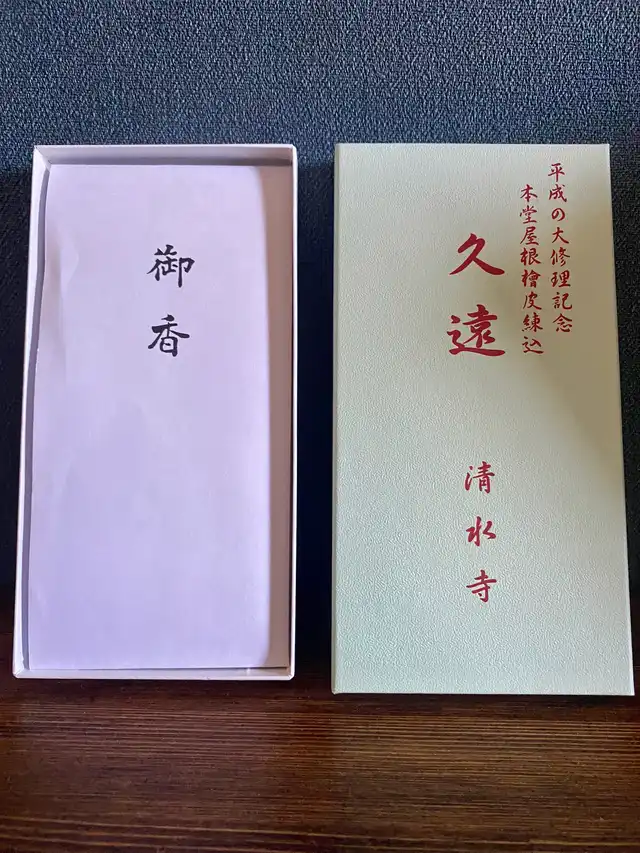 御香
平成の大修理記念
本堂屋根檜皮練込
久遠
清水寺